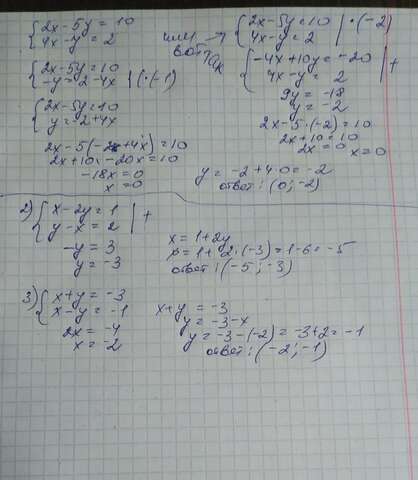 {2x-5y=10
{4x-y=2
{2x-5y=10
{-y=2-4x | (·(-1)
{2x-5y=10
{y=-2+4x
2x-5(-2+4x)=10
2x+10-20x=10
-18x=0
x=0
или вот так →
{2x-5y=10 | ·(-2)
{4x-y=2
{-4x+10y=-20 | +
{4x-y=2
9y=-18
y=-2
2x-5·(-2)=10
2x+10=10
2x=0
x=0
y=-2+4·0=-2
ответ: (0;-2)
2) {x-2y=1 | +
{y-x=2
-y=3
y=-3
x=1+2y
x=1+2·(-3)=1-6=-5
ответ: (-5;-3)
3) {x+y=-3
{x-y=-1
2x=-4
x=-2
x+y=-3
y=-3-x
y=-3-(-2)=-3+2=-1
ответ: (-2;-1)